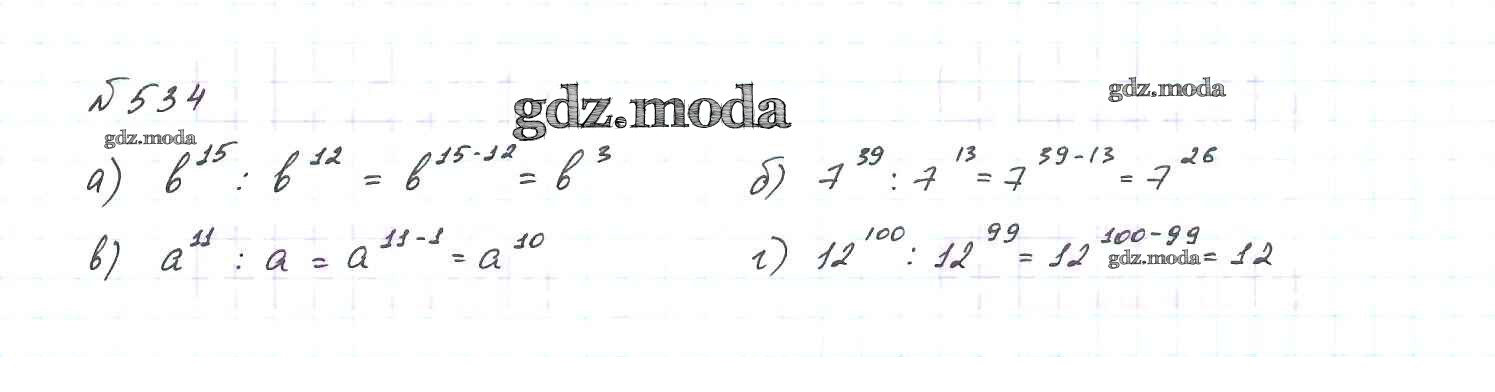 № 534
gdz.moda
gdz.moda
gdz.moda
а) b¹⁵ : b¹² = b¹⁵⁻¹² = b³
б) 7³⁹ : 7¹³ = 7³⁹⁻¹³ = 7²⁶
в) a¹¹ : a = a¹¹⁻¹ = a¹⁰
г) 12¹⁰⁰ : 12⁹⁹ = 12¹⁰⁰⁻⁹⁹ = 12
gdz.moda